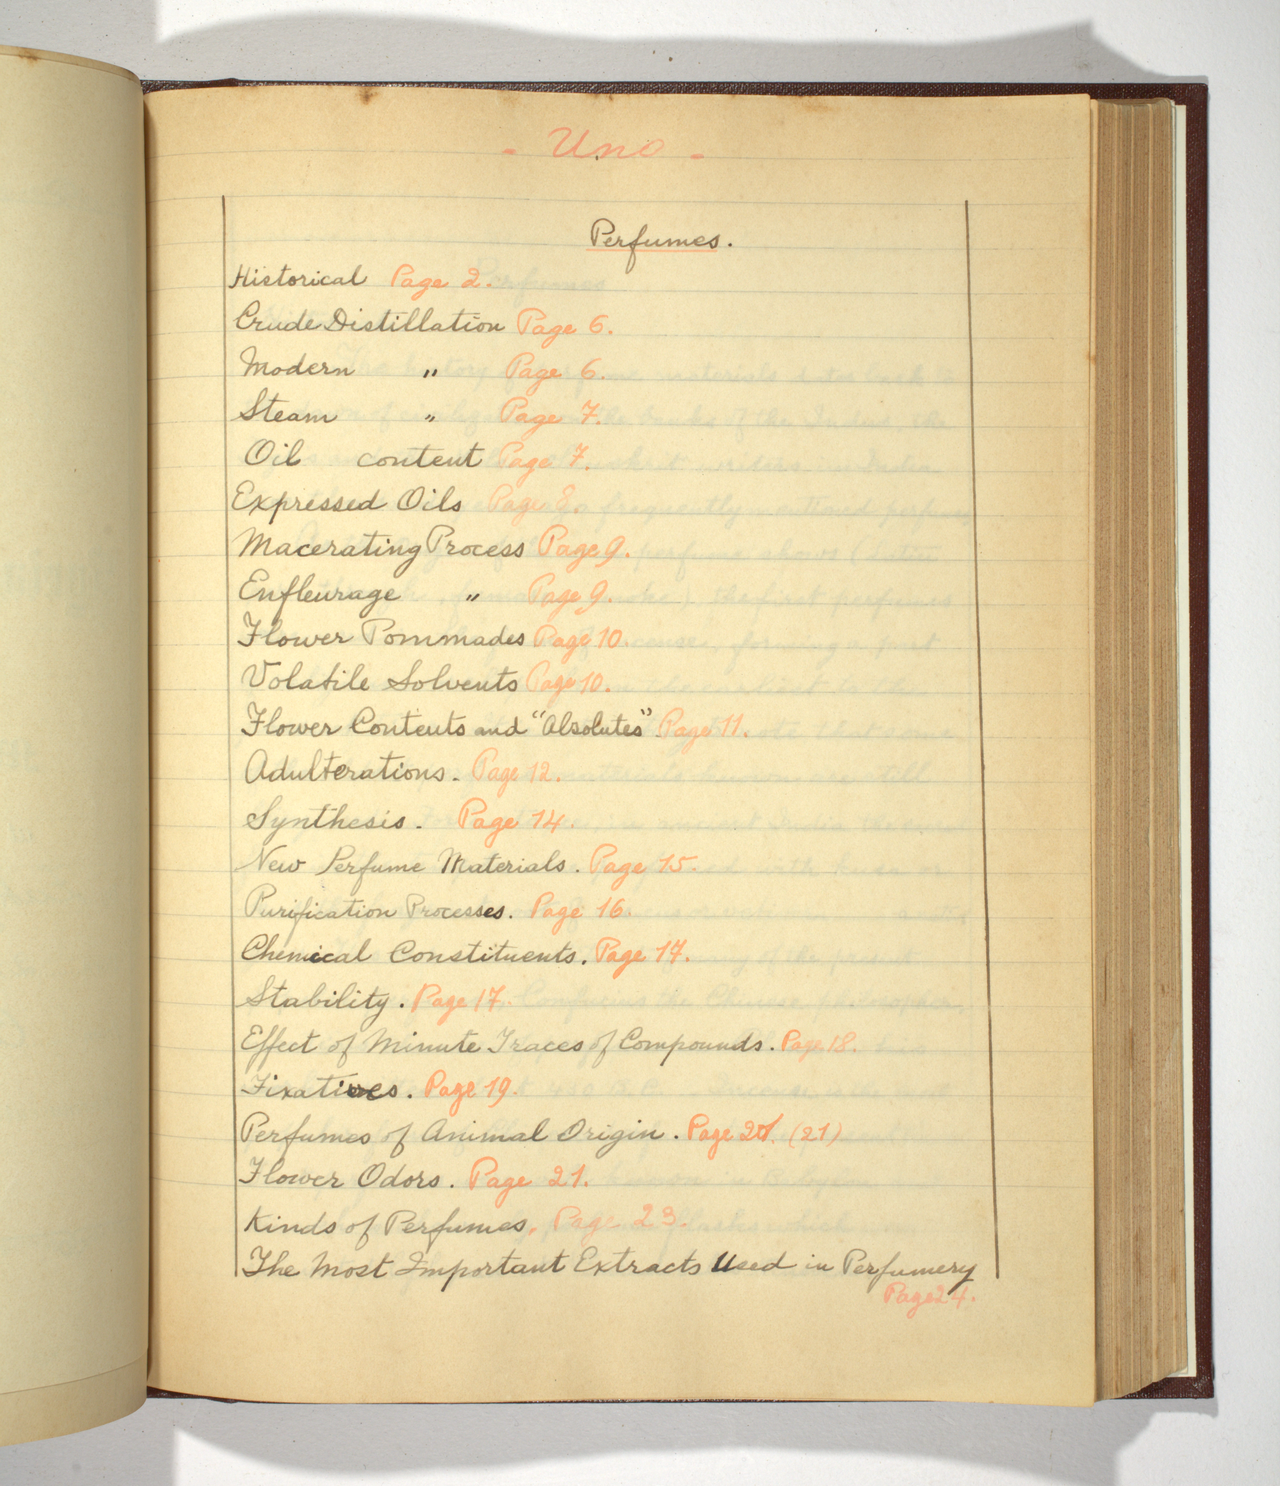 - Uno -
Perfumes.
Historical Page 2.
Crude Distillation Page 6.
Modern " Page 6.
Steam " Page 7.
Oil content Page 7.
Expressed Oils Page 8.
Macerating Process Page 9.
Enfleurage " Page 9.
Flower Pommades Page 10.
Volatile Solvents Page 10.
Flower Contents and "Absolutes" Page 11.
Adulterations. Page 12.
Synthesis. Page 14.
New Perfume Materials. Page 15.
Purification Processes. Page 16.
Chemical Constituents. Page 17.
Stability. Page 17.
Effect of Minute Traces of Compounds. Page 18.
Fixatives. Page 19.
Perfumes of Animal Origin. Page 20. (21)
Flower Odors. Page 21.
Kinds of Perfumes. Page 23.
The Most Important Extracts Used in Perfumery
Page 24.